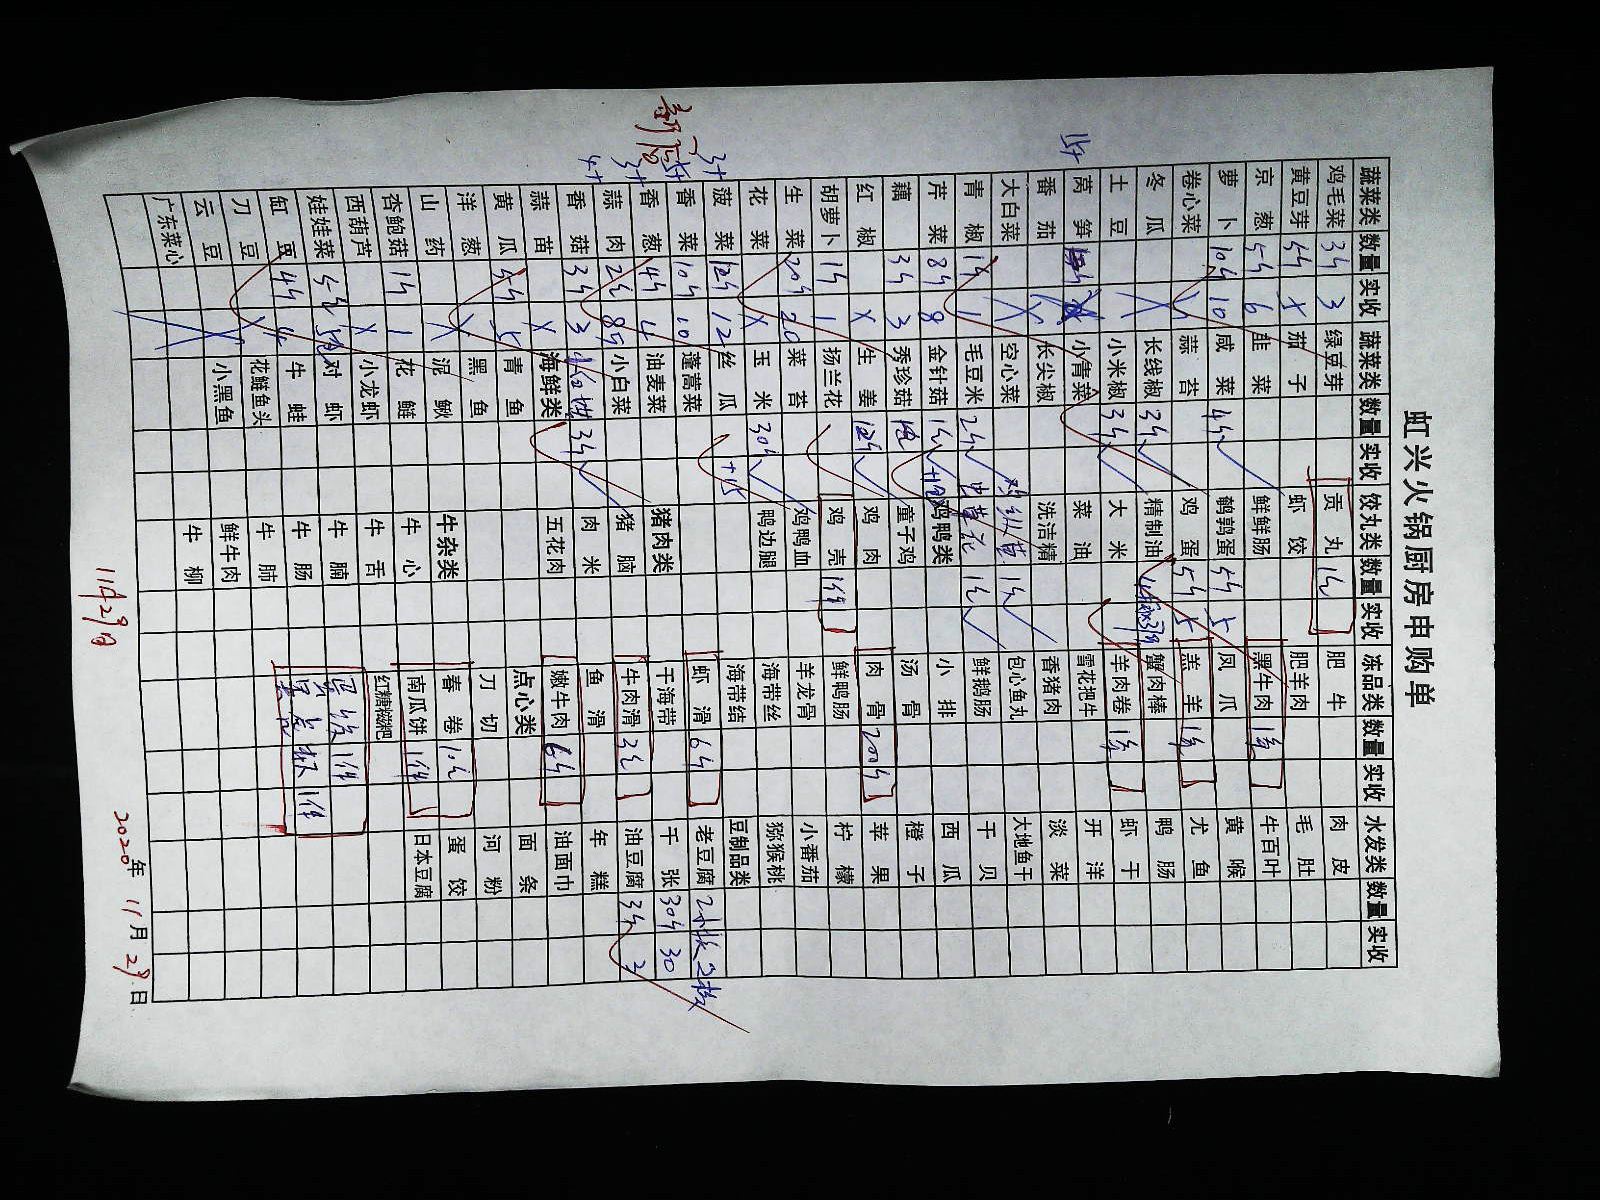 虹兴火锅厨房申购单
蔬菜类 数量 实收 蔬菜类 数量 实收 饺丸类 数量 实收 冻品类 数量 实收 水发类 数量 实收
鸡毛菜 3斤 3 绿豆芽 贡丸 肥牛 肉皮
黄豆芽 5斤 x 茄子 虾饺 肥羊肉 毛肚
京葱 5斤 6 韭菜 鲜鲜肠 黑牛肉 牛百叶
萝卜 10斤 10 咸菜 4斤 鹌鹑蛋 5斤 5 凤爪 黄喉
卷心菜 蒜苔 鸡蛋 5斤 5 羔羊 尤鱼
冬瓜 长线椒 3斤 精制油 蟹肉棒 鸭肠
土豆 小米椒 3斤 大米 羊肉卷 虾干
15斤 莴笋 小青菜 菜油 雪花把牛 开洋
番茄 长尖椒 洗洁精 香猪肉 淡菜
大白菜 空心菜 鸡纵菌 包心鱼丸 大地鱼干
青椒 1斤 1 毛豆米 2斤 虫草花 鲜鹅肠 干贝
芹菜 8斤 8 金针菇 鸡鸭类 小排 西瓜
藕 3斤 3 秀珍菇 童子鸡 汤骨 橙子
红椒 x 生姜 12斤 鸡肉 肉骨 200斤 苹果
胡萝卜 1斤 1 扬兰花 鸡壳 1件 鲜鸭肠 柠檬
生菜 20斤 20 菜苔 鸡鸭血 羊龙骨 小番茄
花菜 x 玉米 30斤 鸭边腿 海带丝 猕猴桃
菠菜 12斤 12 丝瓜 +15 海带结 豆制品类
香菜 10斤 10 蓬蒿菜 虾滑 6斤 老豆腐 2板 2板
香葱 4斤 4 油麦菜 猪肉类 干海带 千张 30斤 30
蒜肉 小白菜 猪脑 牛肉滑 油豆腐 3斤
香菇 3斤 3 3斤 肉米 鱼滑 年糕
蒜苗 x 海鲜类 五花肉 嫩牛肉 6斤 油面巾
黄瓜 5斤 5 青鱼 点心类 面条
洋葱 x 黑鱼 刀切 河粉
山药 x 泥鳅 牛杂类 春卷 蛋饺
杏鲍菇 1斤 1 花鲢 牛心 南瓜饼 1件 日本豆腐
西葫芦 x 小龙虾 牛舌 红糖滋粑
娃娃菜 5斤 对虾 牛腩 1件
缸豆 4斤 4 牛蛙 牛肠 1件
刀豆 花鲢鱼头 牛肺
云豆 小黑鱼 鲜牛肉
广东菜心 牛柳
11月29日
2020年 11月 29日